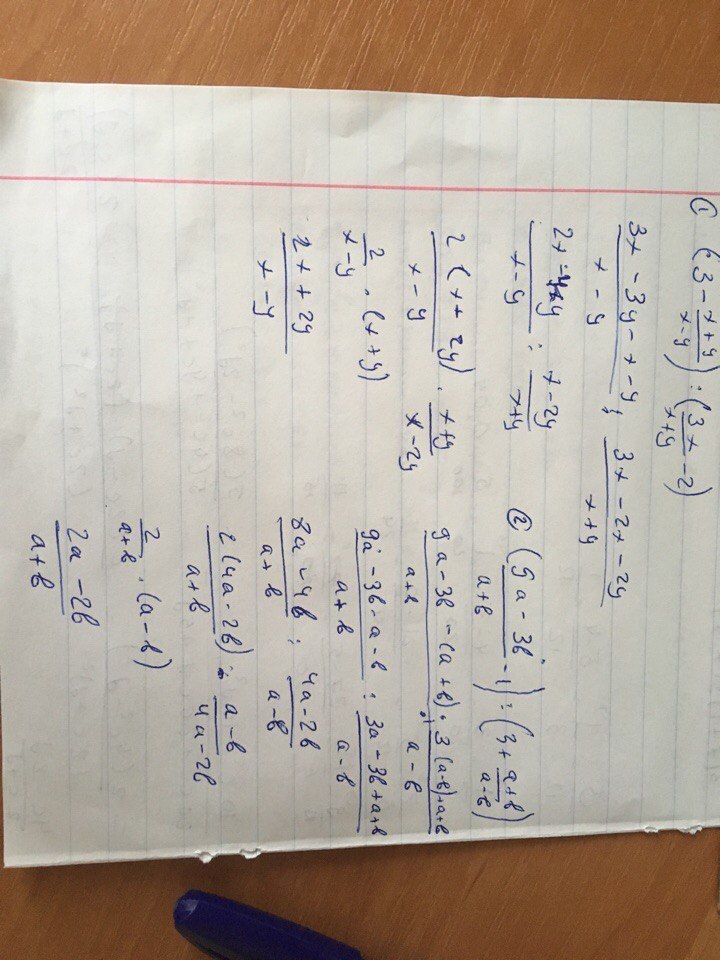 ① (3 - \frac{x+y}{x-y}) : (\frac{3x}{x+y} - 2)
\frac{3x - 3y - x - y}{x - y} : \frac{3x - 2x - 2y}{x+y}
\frac{2x - 4y}{x - y} : \frac{x - 2y}{x+y}
\frac{2(x + 2y)}{x - y} · \frac{x+y}{x - 2y}
\frac{2}{x-y} · (x+y)
\frac{2x + 2y}{x - y}
② (\frac{9a - 3b}{a+b} - 1) : (3 + \frac{a+b}{a-b})
\frac{9a - 3b - (a + b)}{a+b} : \frac{3(a-b)+a+b}{a - b}
\frac{9a - 3b - a - b}{a + b} : \frac{3a - 3b + a + b}{a - b}
\frac{8a - 4b}{a + b} : \frac{4a - 2b}{a - b}
\frac{2(4a - 2b)}{a + b} · \frac{a - b}{4a - 2b}
\frac{2}{a+b} · (a - b)
\frac{2a - 2b}{a + b}